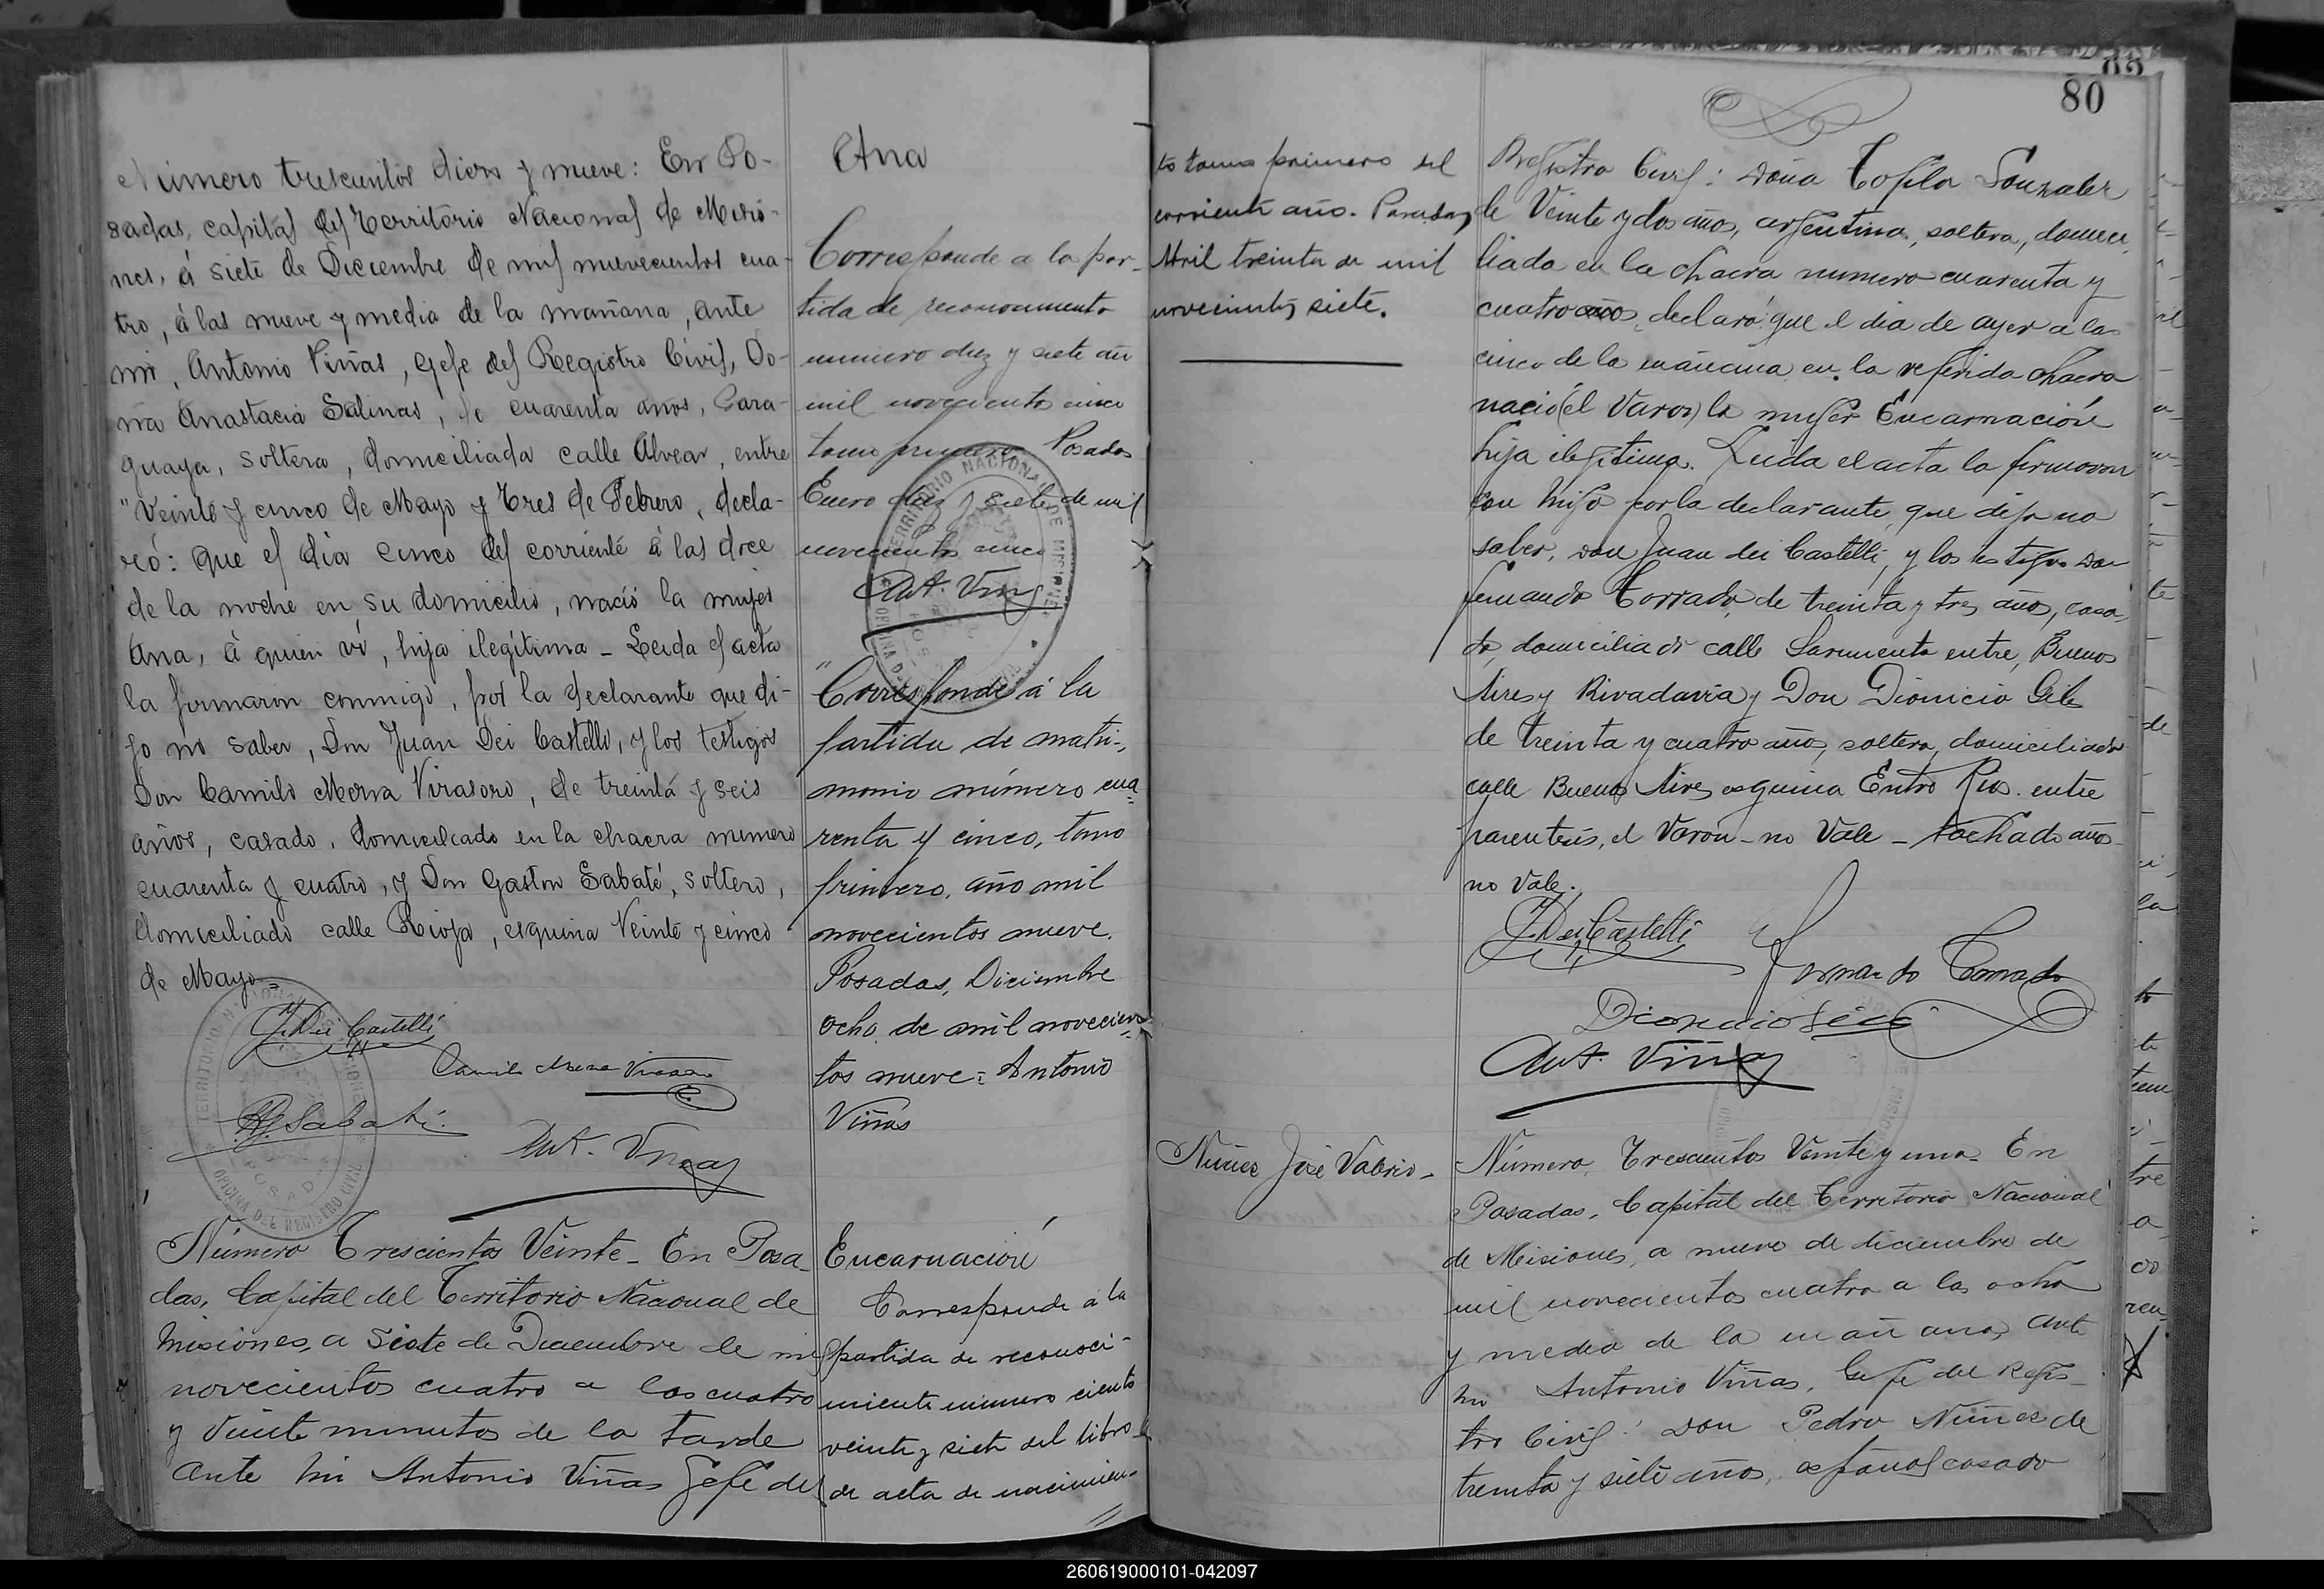 Número trescientos diez y nueve: En Po-
sadas, capital del Territorio Nacional de Misio-
nes, á siete de Diciembre de mil nuevecientos cua-
tro, á las nueve y media de la mañana, ante
mi, Antonio Viñas, Gefe del Registro Civil, Do-
ña Anastacia Salinas, de cuarenta años, Para-
guaya, soltera, domiciliada calle Alvear, entre
"Veinte y cinco de Mayo y Tres de Febrero, decla-
ró: Que el dia cinco del corriente á las doce
de la noche en su domicilio, nació la mujer
Ana, á quien ví, hija ilegítima - Leida el acta
la firmaron conmigo, por la declarante que di-
jo no saber, Don Juan Dei Castelli, y los testigos
Don Camilo Merna Virasoro, de treinta y seis
años, casado, domiciliado en la chacra numero
cuarenta y cuatro, y Don Gaston Sabaté, soltero,
domiciliado calle Rioja, esquina Veinte y cinco
de Mayo=
J. Dei Castelli
Camilo Virasoro
Sabaté
Ant. Viñas
TERRITORIO NACIONAL DE MISIONES
OFICINA DEL REGISTRO CIVIL
POSADAS
Ana
Corresponde a la par-
tida de reconocimiento
numero diez y siete año
mil novecientos cinco
tomo primero Posadas
Enero diez y siete de mil
novecientos cinco
Ant. Viñas
TERRITORIO NACIONAL DE MISIONES
"Corresponde á la
partida de matri-
monio número cua
renta y cinco, tomo
primero, año mil
novecientos nueve.
Posadas, Diciembre
ocho de mil novecien
tos nueve= Antonio
Viñas
Número Trescientos Veinte - En Posa-
das, Capital del Territorio Nacional de
Misiones, a Siete de Diciembre de mil
novecientos cuatro a las cuatro
y Veinte minutos de la tarde
ante mi Antonio Viñas Gefe del
Encarnación
Corresponde á la
partida de reconoci-
miento número ciento
veinte y siete del libro
de acta de nacimien-
to tomo primero del
corriente año. Posadas,
Abril treinta de mil
novecientos siete.
80
Registro Civil: Doña Tofila Gonzalez
de Veinte y dos años, argentina, soltera, domici
liada en la chacra numero cuarenta y
cuatro años, declaró: que el dia de ayer a las
cinco de la mañana en la referida chacra
nació (el Varon) la mujer Encarnación
hija ilegítima. Leida el acta la firmaron
con migo por la declarante, que dijo no
saber, don Juan dei Castelli, y los testigos Don
Fernando Torrado, de treinta y tres años, casa
do, domiciliado calle Sarmiento entre, Buenos
Aires y Rivadavia y Don Dionicio Gili
de treinta y cuatro años, soltero, domiciliado
calle Buenos Aires esquina Entre Rios. entre
parentesis, el Varon - no Vale - tachado años
no Vale.
J. Dei Castelli
Fernando Torrado
Dionicio Gili
Ant. Viñas
Nuñes José Valerio -
Número, Trescientos Veinte y uno - En
Posadas, Capital del Territorio Nacional
de Misiones, a nueve de diciembre de
mil novecientos cuatro a las ocho
y media de la mañana, ante
mi Antonio Viñas, Gefe del Regis-
tro Civil: Don Pedro Nuñes de
treinta y siete años, español casado
260619000101-042097